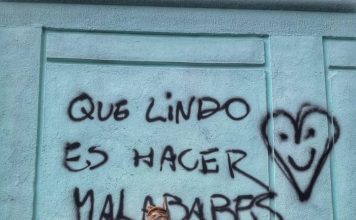 QUE LINDO
ES HACER
MALABARES